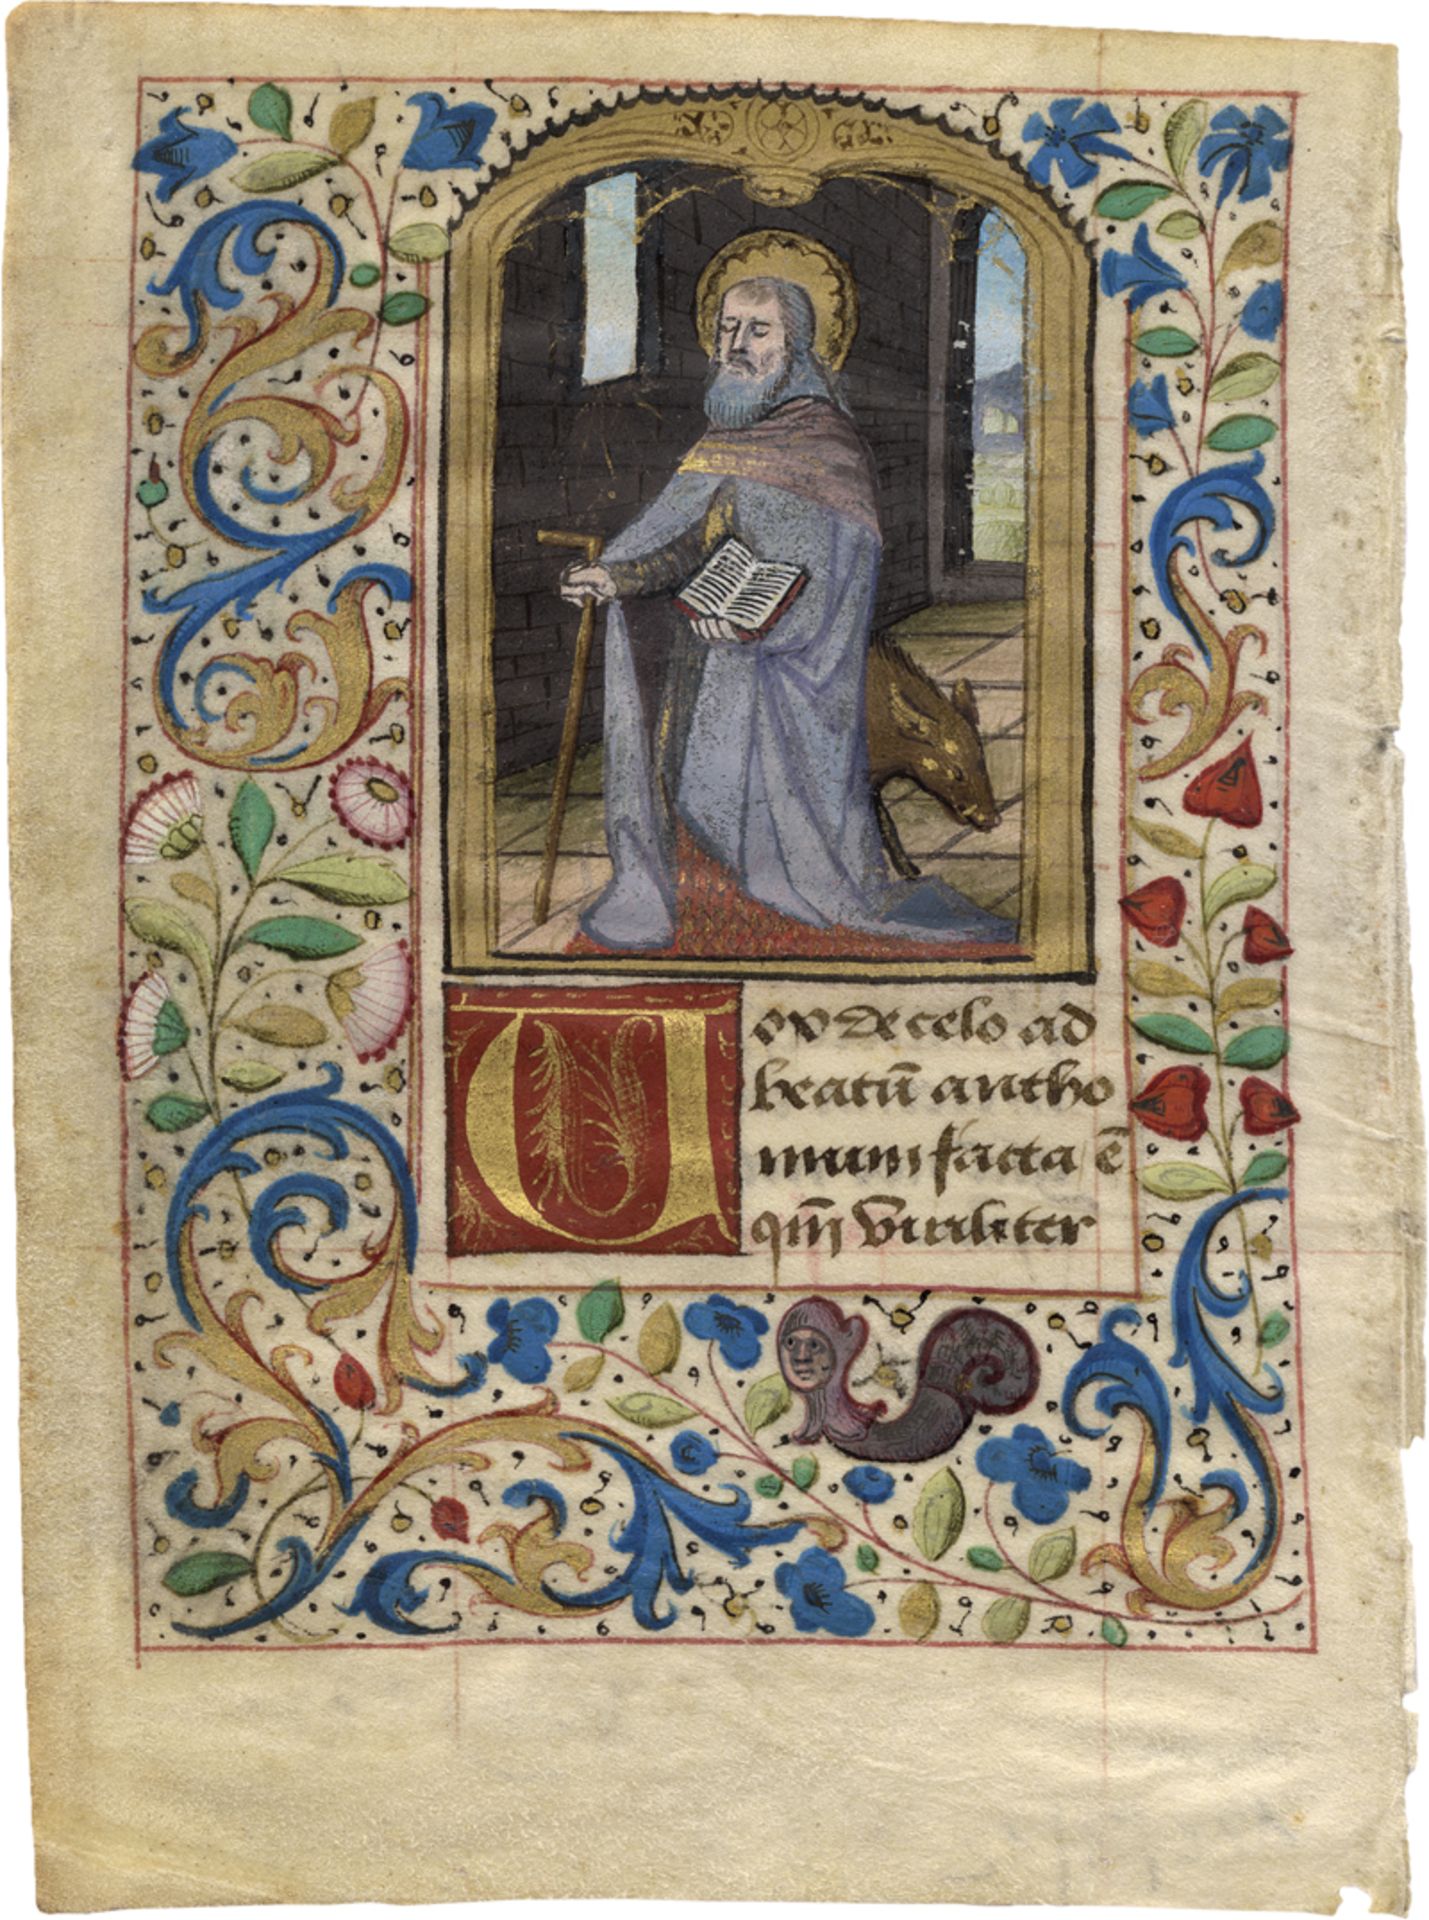 Vox de celo ad
beatū antho
nium facta ē
qm̄ viriliter